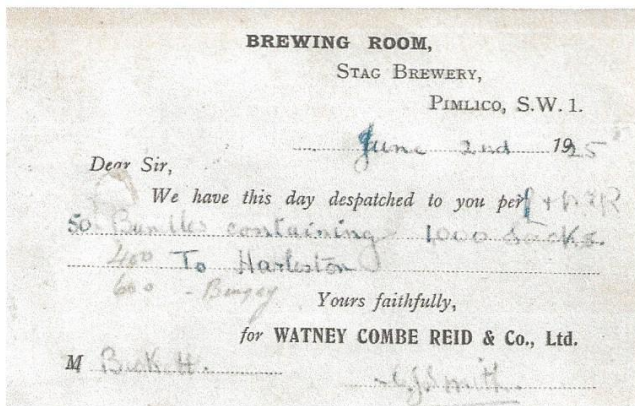 BREWING ROOM,
STAG BREWERY,
PIMLICO, S.W. 1.
June 2nd 1925
Dear Sir,
We have this day despatched to you per
50 Bundles containing 1000 sacks.
400 To Harleston
600 - Bungay
Yours faithfully,
for WATNEY COMBE REID & Co., Ltd.
M Beckett.
Smith.